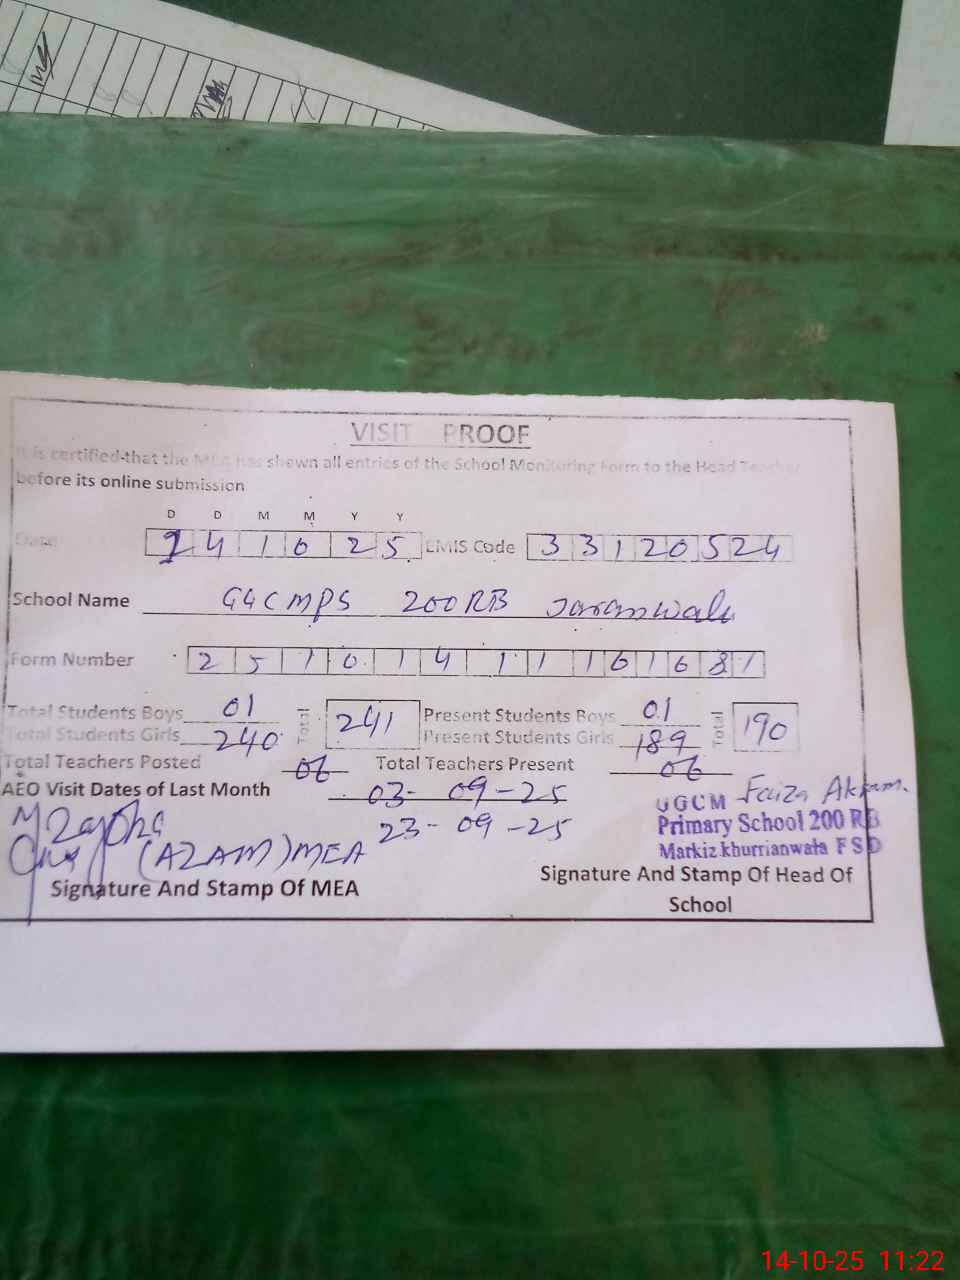 VISIT PROOF
It is certified that the MEA has shown all entries of the School Monitoring Form to the Head Teacher
before its online submission
D D M M Y Y
Date 141025 EMIS Code 33120524
School Name GGCMPS 200RB Jaranwala
Form Number 25101411161681
Total Students Boys 01 Total 241 Present Students Boys 01 Total 190
Total Students Girls 240 Present Students Girls 189
Total Teachers Posted 06 Total Teachers Present 06
AEO Visit Dates of Last Month 03-09-25
23-09-25
GGCM Faiza Akram.
Primary School 200 RB
Markiz khurrianwala FSD
(AZAM) MEA
Signature And Stamp Of MEA
Signature And Stamp Of Head Of
School
14-10-25 11:22